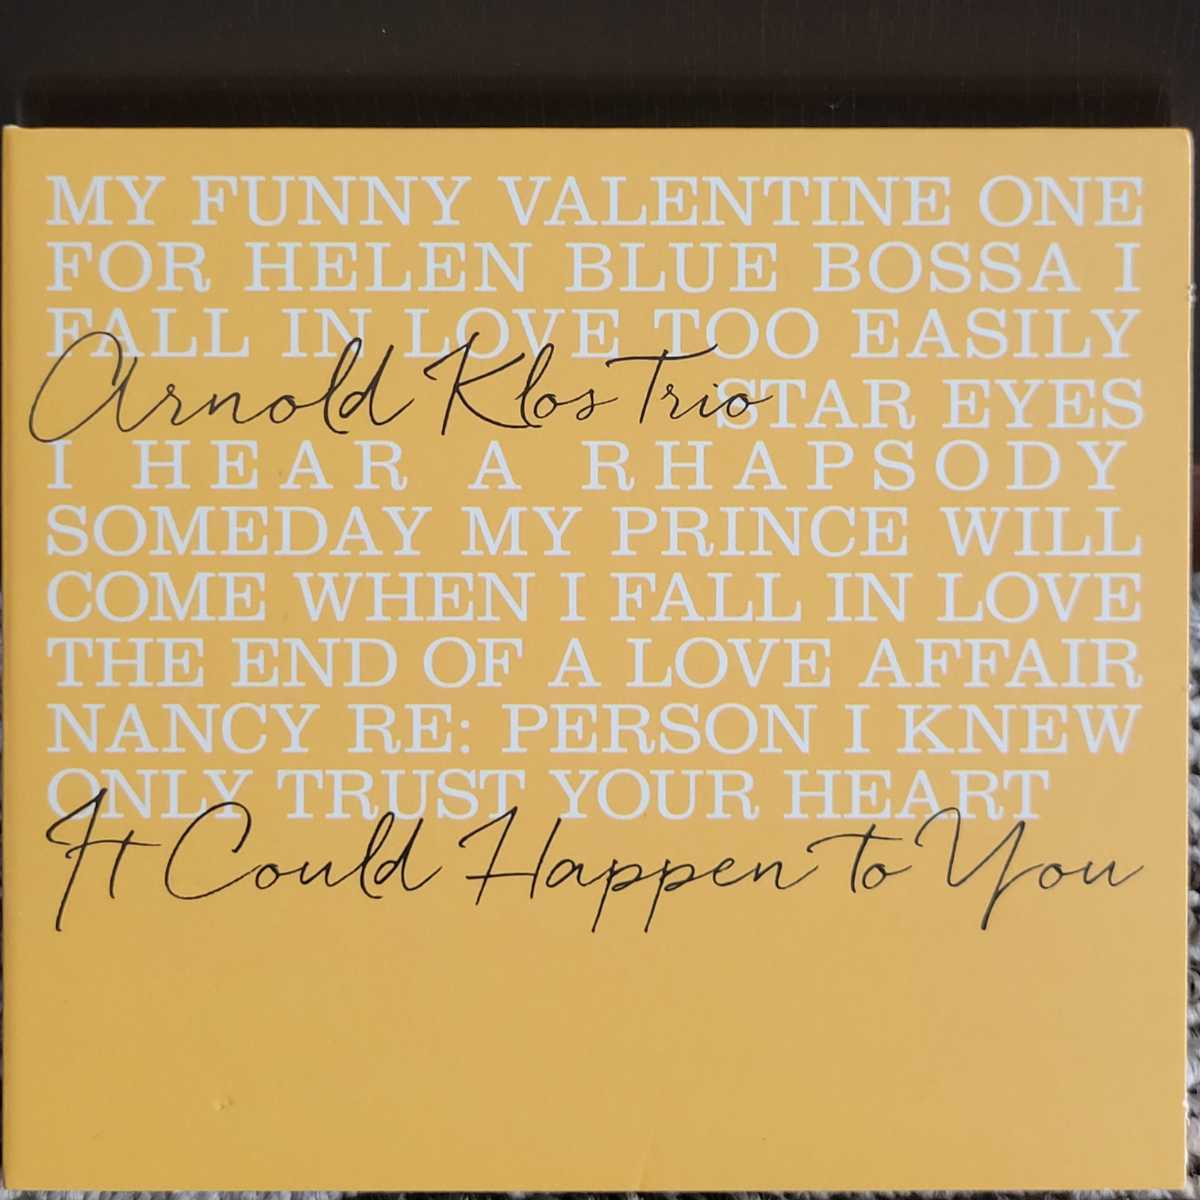 MY FUNNY VALENTINE ONE
FOR HELEN BLUE BOSSA I
FALL IN LOVE TOO EASILY
Arnold Klos Trio STAR EYES
I HEAR A RHAPSODY
SOMEDAY MY PRINCE WILL
COME WHEN I FALL IN LOVE
THE END OF A LOVE AFFAIR
NANCY RE: PERSON I KNEW
ONLY TRUST YOUR HEART
It Could Happen to You